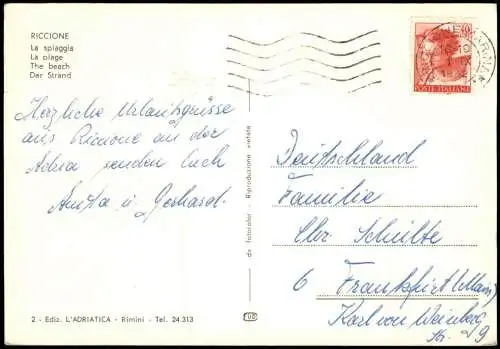 RICCIONE
La spiaggia
La plage
The beach
Der Strand
40
POSTE ITALIANE
Herzliche Urlaubsgrüsse
aus Riccione an der
Adria senden Euch
Anita u. Gerhard.
Deutschland
Familie
Chr. Schulte
6 Frankfurt (Main)
Karl von Weinberg
Str. 29
de fotocolor - Riproduzione vietata
2 - Ediz. L'ADRIATICA - Rimini - Tel. 24.313